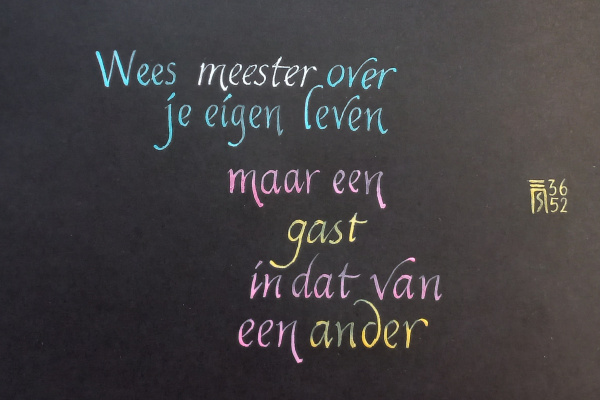 Wees meester over
je eigen leven
maar een
gast
in dat van
een ander
36
52